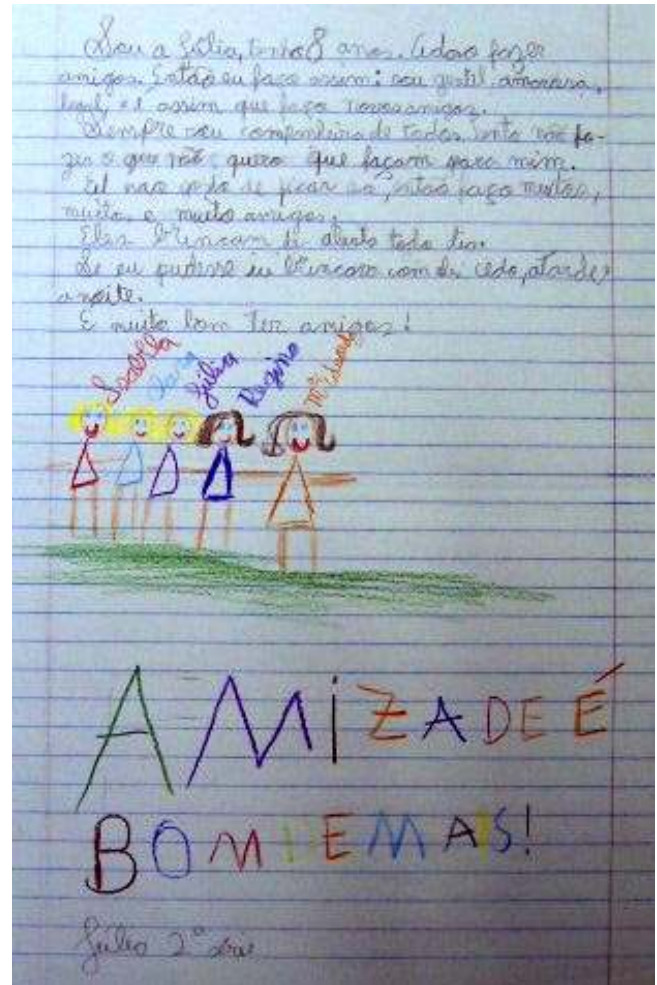 Sou a Júlia, tenho 8 anos. Adoro fazer
amigos. Então eu faço assim: sou gentil, amorosa,
legal, e é assim que faço novos amigos.
Sempre sou companheira de todos, tento não fa-
zer o que não quero que façam para mim.
Eu não gosto de ficar só, então faço muitos,
muitos e muitos amigos.
Eles brincam de todo dia.
Se eu pudesse eu brincava com eles cedo, a tarde e
a noite.
É muito bom ter amigos!
Isabella Clara Júlia Regina Mª Eduarda
AMiZADE É
BOM DEMAIS!
Júlia 2ª série